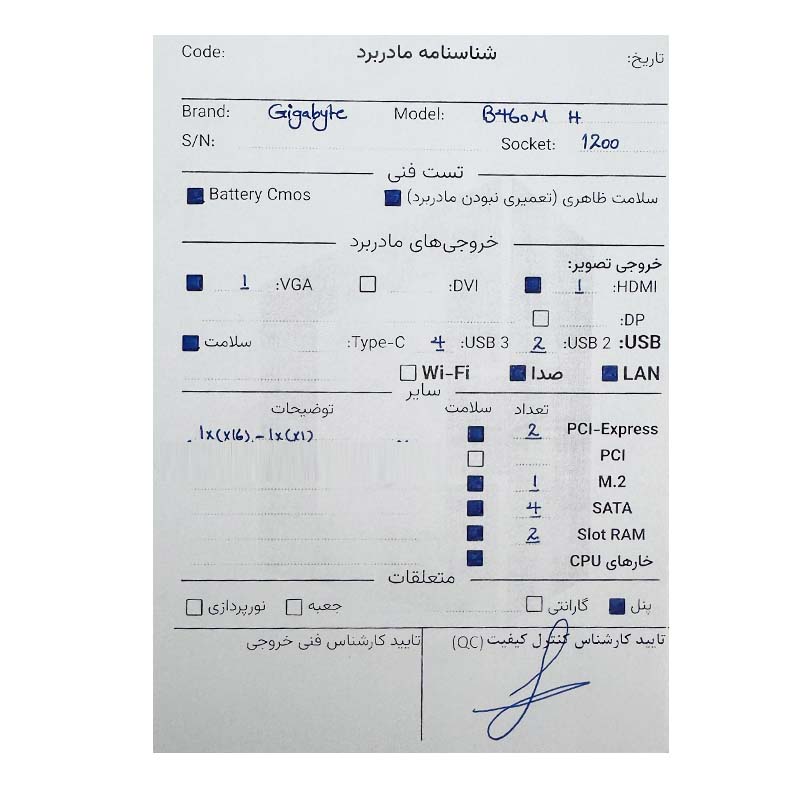 Code: شناسنامه مادربرد تاریخ:
Brand: Gigabyte Model: B460M H
S/N: Socket: 1200
تست فنی
سلامت ظاهری (تعمیری نبودن مادربرد) Battery Cmos
خروجی‌های مادربرد
خروجی تصویر:
HDMI: 1 DVI: VGA: 1
DP:
USB: USB 2: 2 USB 3: 4 Type-C: سلامت
LAN صدا Wi-Fi
سایر
تعداد سلامت توضیحات
PCI-Express 2 1x(x16) - 1x(x1)
PCI
M.2 1
SATA 4
Slot RAM 2
خارهای CPU
متعلقات
پنل گارانتی جعبه نورپردازی
تایید کارشناس کنترل کیفیت (QC) تایید کارشناس فنی خروجی